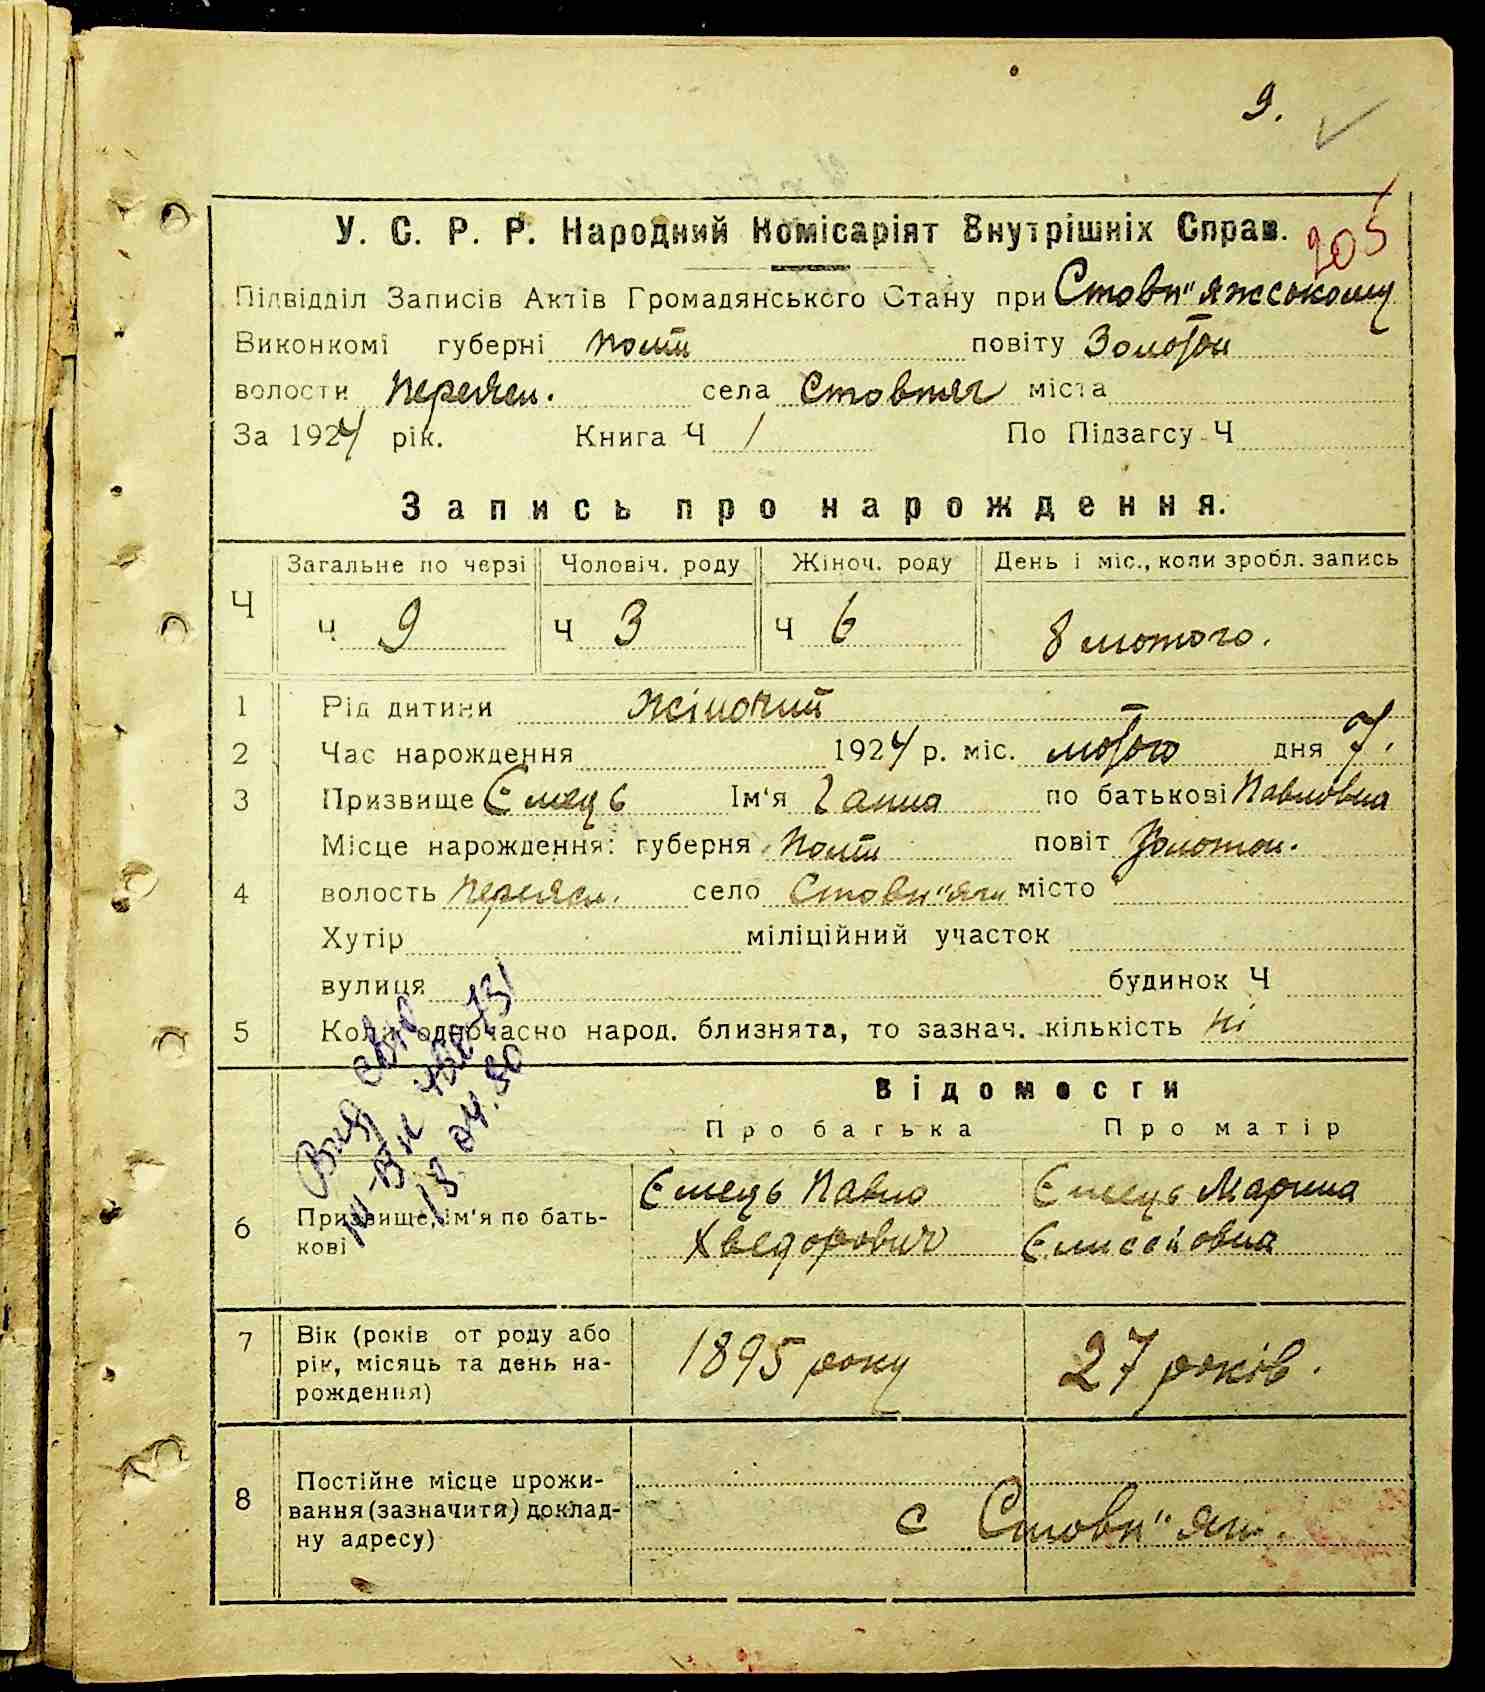 9.
205
У. С. Р. Р. Народний Комісаріят Внутрішніх Справ.
Підвідділ Записів Актів Громадянського Стану при Стовп"яжському
Виконкомі губерні Полт повіту Золотон
волости Переясл. села Стовпяг міста
За 1924 рік. Книга Ч 1 По Підзагсу Ч
Запись про нарождення.
Загальне по черзі Чоловіч. роду Жіноч. роду День і міс., коли зробл. запись
Ч ч 9 Ч 3 Ч 6 8 лютого.
1 Рід дитини жіночий
2 Час нарождення 1924 р. міс. лютого дня 7.
3 Призвище Ємець Ім'я Ганна по батькові Павловна
Місце нарождення: губерня Полт повіт Золотон.
4 волость Переясл. село Стовп"яги місто
Хутір міліційний участок
вулиця будинок Ч
5 Коли одночасно народ. близнята, то зазнач. кількість ні
Відомости
Про батька Про матір
Ємець Павло Ємець Марина
6 Призвище, ім'я по бать-
кові Хведорович Єлисейовна
7 Вік (років от роду або
рік, місяць та день на-
рождення) 1895 року 27 років.
8 Постійне місце прожи-
вання (зазначити) доклад-
ну адресу) с Стовп"яги.
13.04.50